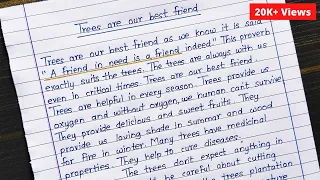 20K+ Views
Trees are our best friend
Trees are our best friend as we know it is said
" A friend in need is a friend indeed." This proverb
exactly suits the trees. The trees are always with us
even in critical times. Trees are our best friend.
Trees are helpful in every season. Trees provide us
oxygen and without oxygen, we human can't survive
They provide delicious and sweet fruits. They
provide us loving shade in summar and wood
for fire in winter. Many trees have medicinal
properties. They help to cure diseases.
The trees don't expect anything in
be careful about cutting
trees plantation
nature